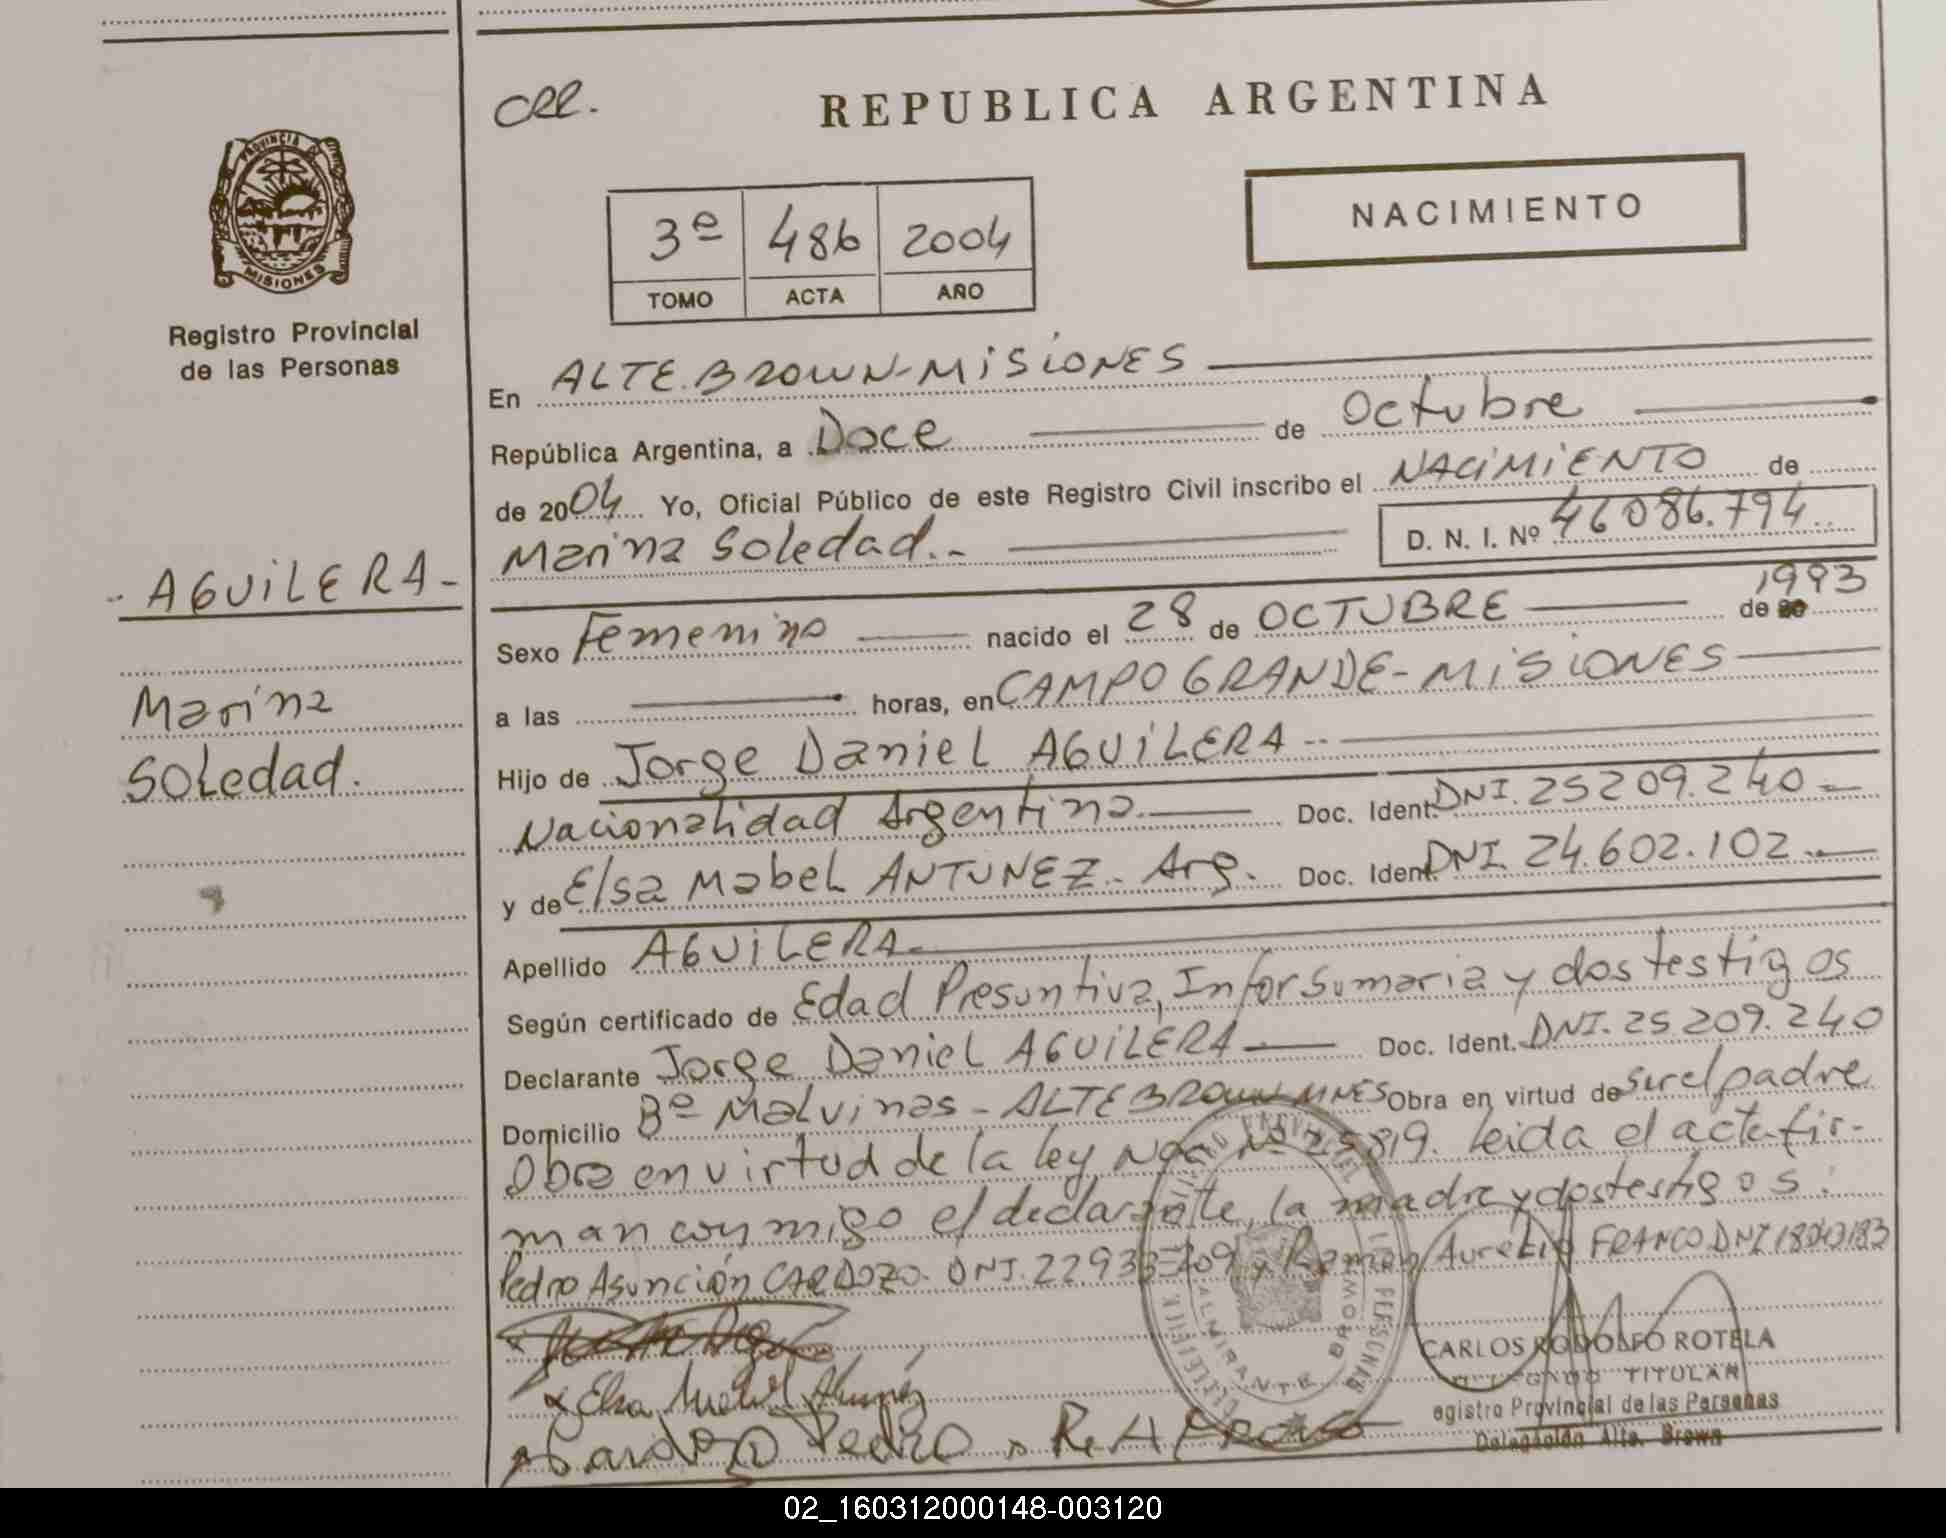 CRR.
REPUBLICA ARGENTINA
PROVINCIA DE
MISIONES
Registro Provincial
de las Personas
3º 486 2004
TOMO ACTA AÑO
NACIMIENTO
- AGUILERA -
Marina
Soledad.
En ALTE. BROWN - MISIONES
República Argentina, a Doce de Octubre
de 2004 Yo, Oficial Público de este Registro Civil inscribo el NACIMIENTO de
Marina Soledad.- D. N. I. Nº 46086.794
Sexo Femenino nacido el 28 de OCTUBRE de 1993
a las horas, en CAMPO GRANDE - MISIONES
Hijo de Jorge Daniel AGUILERA --
Nacionalidad Argentina. Doc. Ident. DNI. 25209.240 -
y de Elsa Mabel ANTUNEZ - Arg. Doc. Ident. DNI 24.602.102.-
Apellido AGUILERA
Según certificado de Edad Presuntiva, Infor Sumaria y dos testigos
Declarante Jorge Daniel AGUILERA Doc. Ident. DNI. 25209.240
Domicilio Bº Malvinas - ALTE BROWN MNES Obra en virtud de ser el padre
Obra en virtud de la ley Nac Nº 25819. Leida el acta fir-
man conmigo el declarante, la madre y dos testigos:
Pedro Asunción CARDOZO. DNI. 22933209 y Ramon Aurelio FRANCO DNI
Elsa Mabel
Cardozo Pedro
ALMIRANTE BROWN
CARLOS RODOLFO ROTELA
TITULAR
egistro Provincial de las Personas
Delegación Alte. Brown
02_160312000148-003120